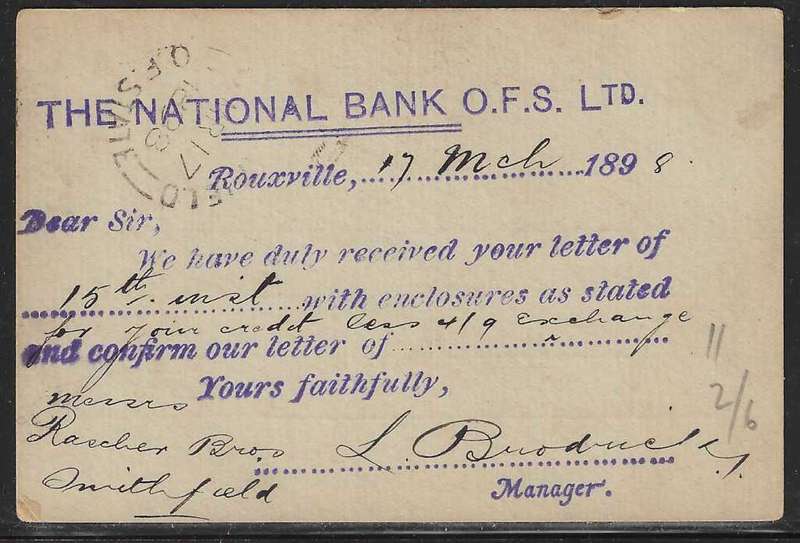 THE NATIONAL BANK O.F.S. LTD.
Rouxville, 17 Mch 1898.
Dear Sir,
We have duly received your letter of
15th. inst with enclosures as stated
for your credit less 4/9 exchange
and confirm our letter of
Yours faithfully,
Messrs
Rascher Bros
L. Brodrick
Smithfield
Manager.
O.F. STATE
17
98
11
2/6